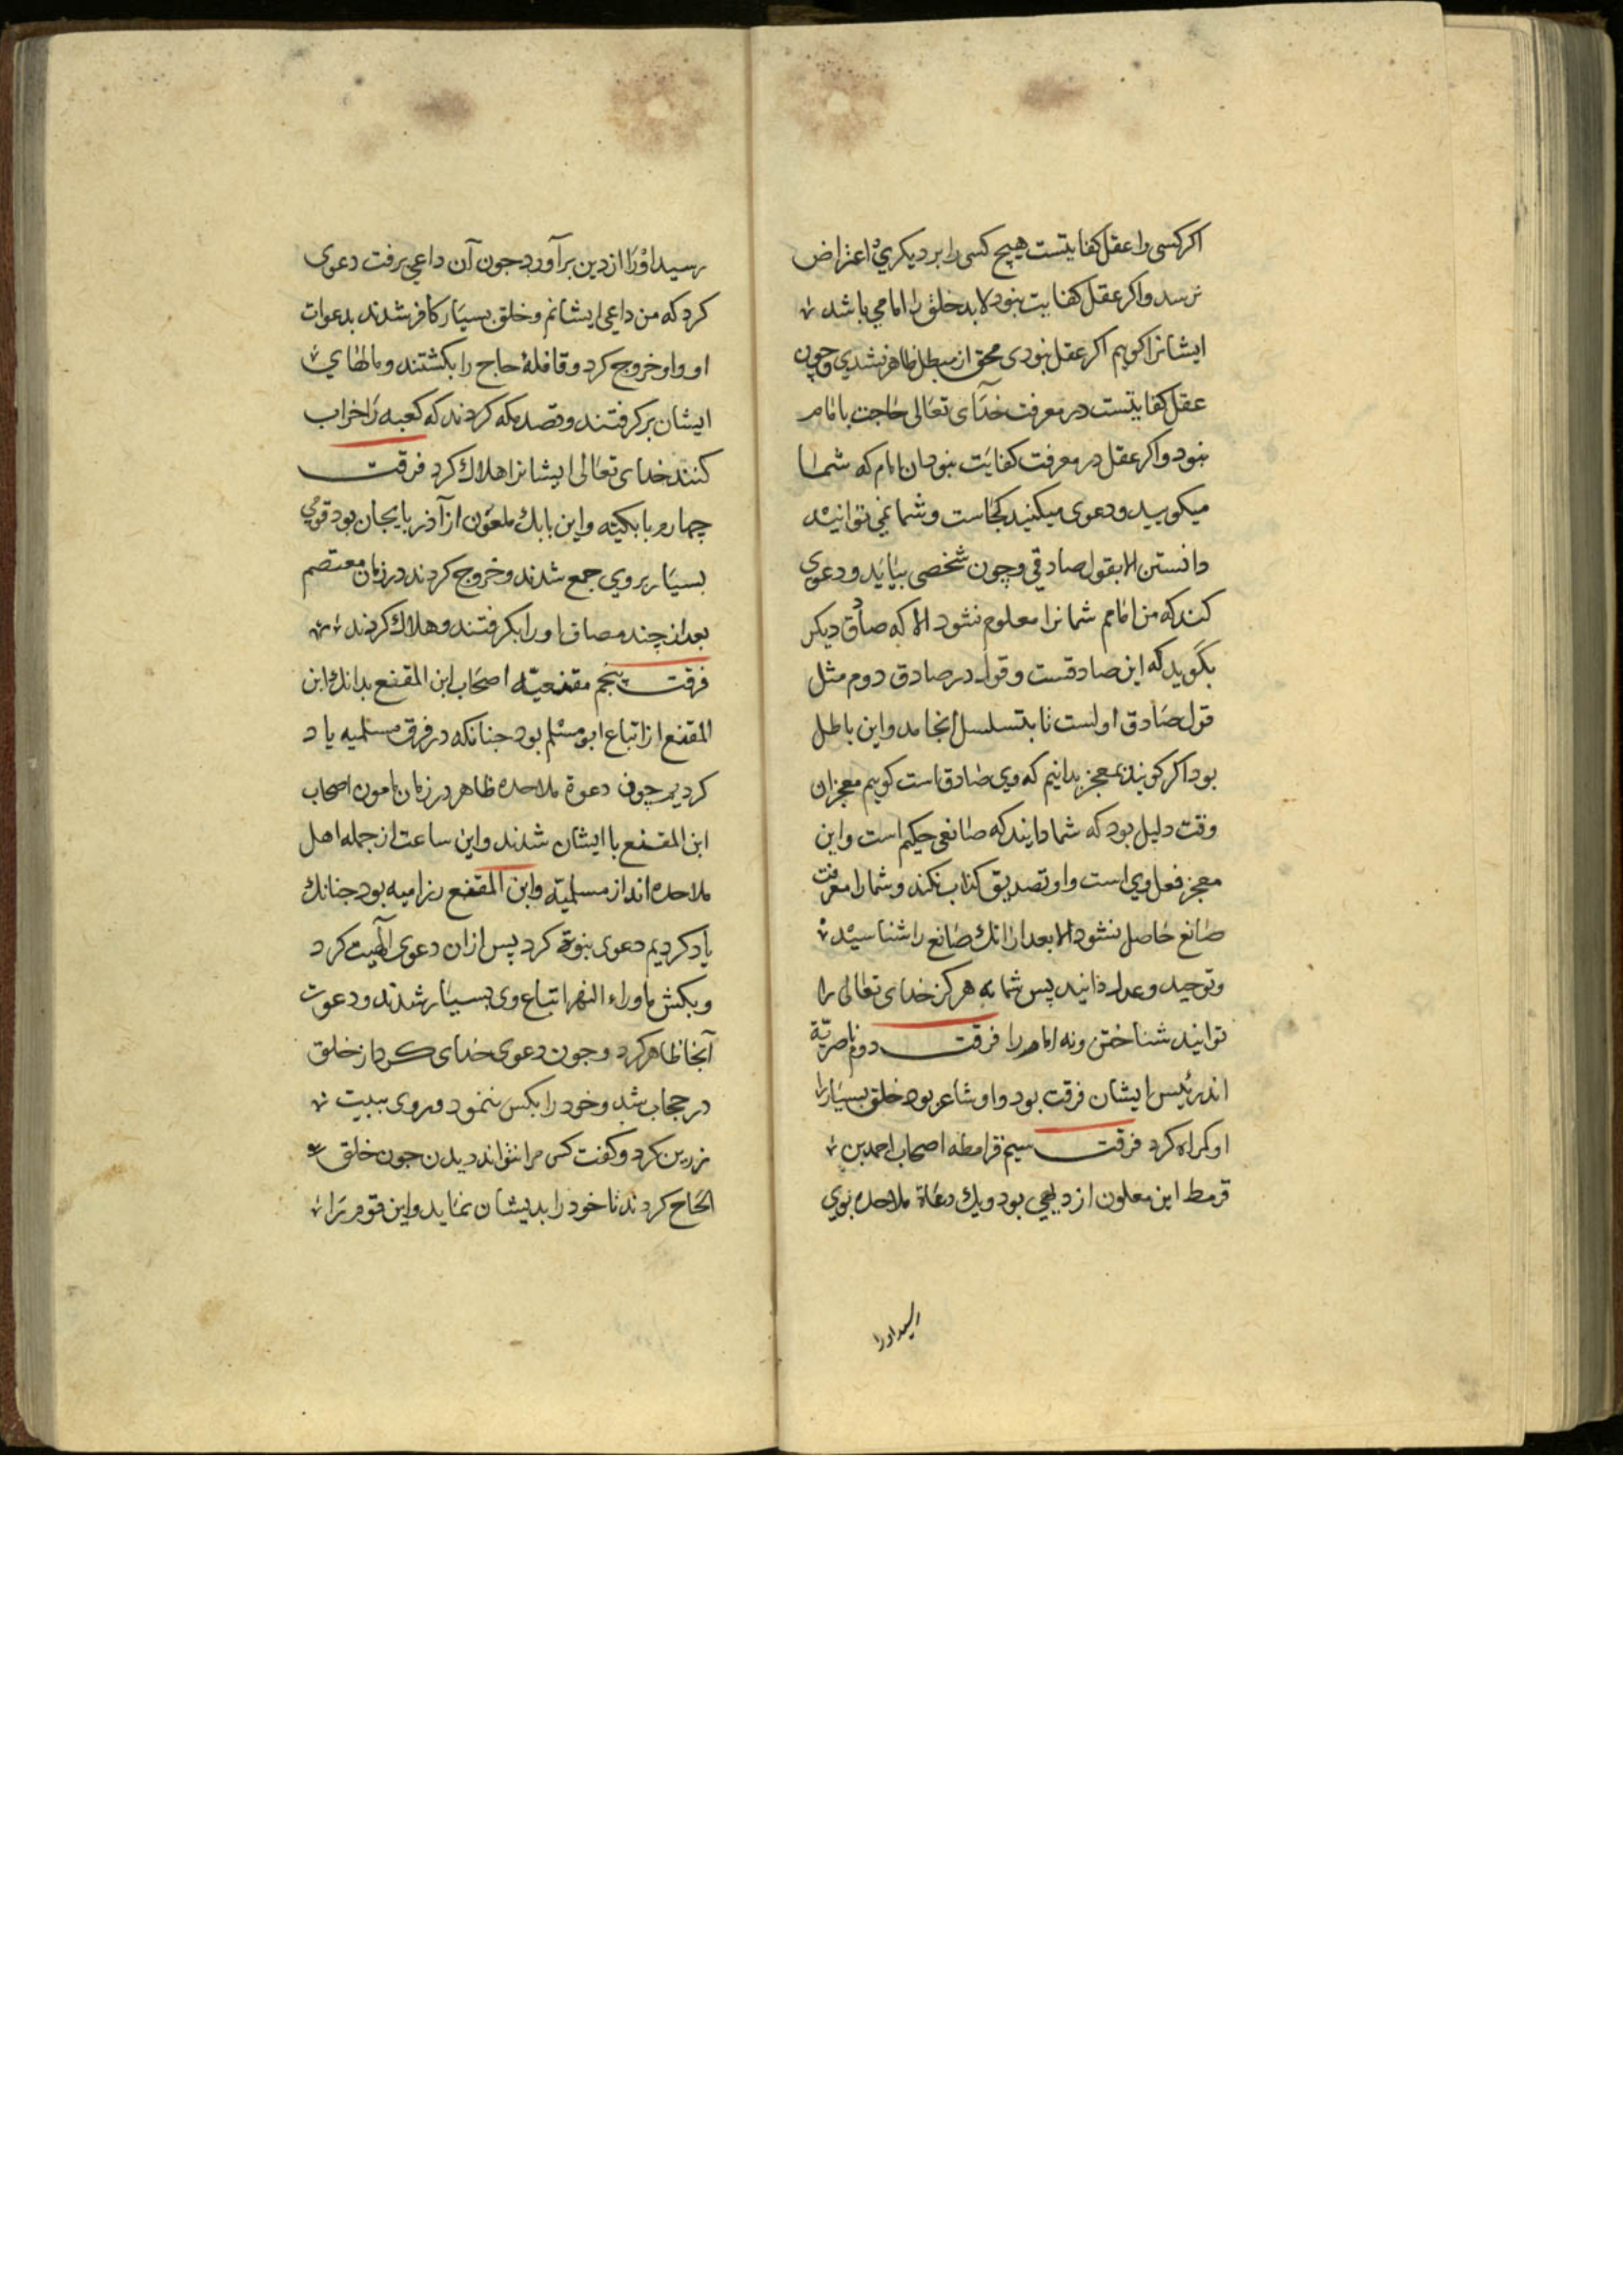 اکر کسی را عقل کفایتست هیچ کسی را بر دیکری اعتراض
نرسد و اکر عقل کفایت نبود لابد خلق را امامی باشد
ایشانرا کویم اکر عقل نبودی محق از مبطل ظاهر نشدی و چون
عقل کفایتست در معرفت خدای تعالی حاجت بامام
نبود و اکر عقل در معرفت کفایت نبود ان امام که شما
میکویید و دعوی میکنید کجاست و شما نمی توانید
دانستن الا بقول صادقی و چون شخصی بیاید و دعوی
کند که من امامم شمانرا معلوم نشود الا که صادق دیکر
بکوید که این صادقست و قول در صادق دوم مثل
قول صادق اولست تا بتسلسل انجامد و این باطل
بود اکر کویند بمعجز بدانیم که وی صادق است کویم معجز ان
وقت دلیل بود که شما دانید که صانعی حکیم است و این
معجز فعل وی است و او تصدیق کذاب نکند و شما را معرفت
صانع حاصل نشود الا بعد از انك صانع را شناسید
و توحید و عدل دانید پس شما نه هرکز خدای تعالی را
توانید شناختن و نه امام را فرقت دوم ناصریة
اند رئیس ایشان فرقت بود و او شاعر بود خلق بسیار را
او کمراه کرد فرقت سیم قرامطه اصحاب احمد بن
قرمط این معلون از دیهی بود ویك دعاة ملاحده بوی
رسید اورا
رسید اورا از دین برآورد جون آن داعی برفت دعوی
کرد که من داعی ایشانم و خلق بسیار کافر شدند بدعوات
او و او خروج کرد و قافلهٔ حاج را بکشتند و مالهای
ایشان برکرفتند و قصد مکه کردند که کعبه را خراب
کنند خدای تعالی ایشانرا هلاك کرد فرقت
چهارم بابکیته و این بابك ملعون از آذربایجان بود قومی
بسیار بر وی جمع شدند و خروج کردند در زمان معتصم
بعد از چند مصاف اورا بکرفتند و هلاك کردند
فرقت پنجم مقنعیّه اصحاب ابن المقنع بدانك ابن
المقنع از اتباع ابو مسلم بود جنانکه در فرق مسلمیه یاد
کردیم چون دعوة ملاحده ظاهر در زمان مامون اصحاب
ابن المقنع با ایشان شدند و این ساعت از جمله اهل
ملاحده اند از مسلمیّه و ابن المقنع رزامیه بود جنانك
یاد کردیم دعوی نبوة کرد پس ازان دعوی الهیت کرد
و بکش ماوراء النهر اتباع وی بسیار شدند و دعوت
آنجا ظاهر کرد و جون دعوی خدای کرد از خلق
در حجاب شد و خود را بکس ننمود و روی ببیت
زرین کرد و کفت کس مرا نتواند دیدن جون خلق
الحاح کردند تا خود را بدیشان نماید و این قوم را